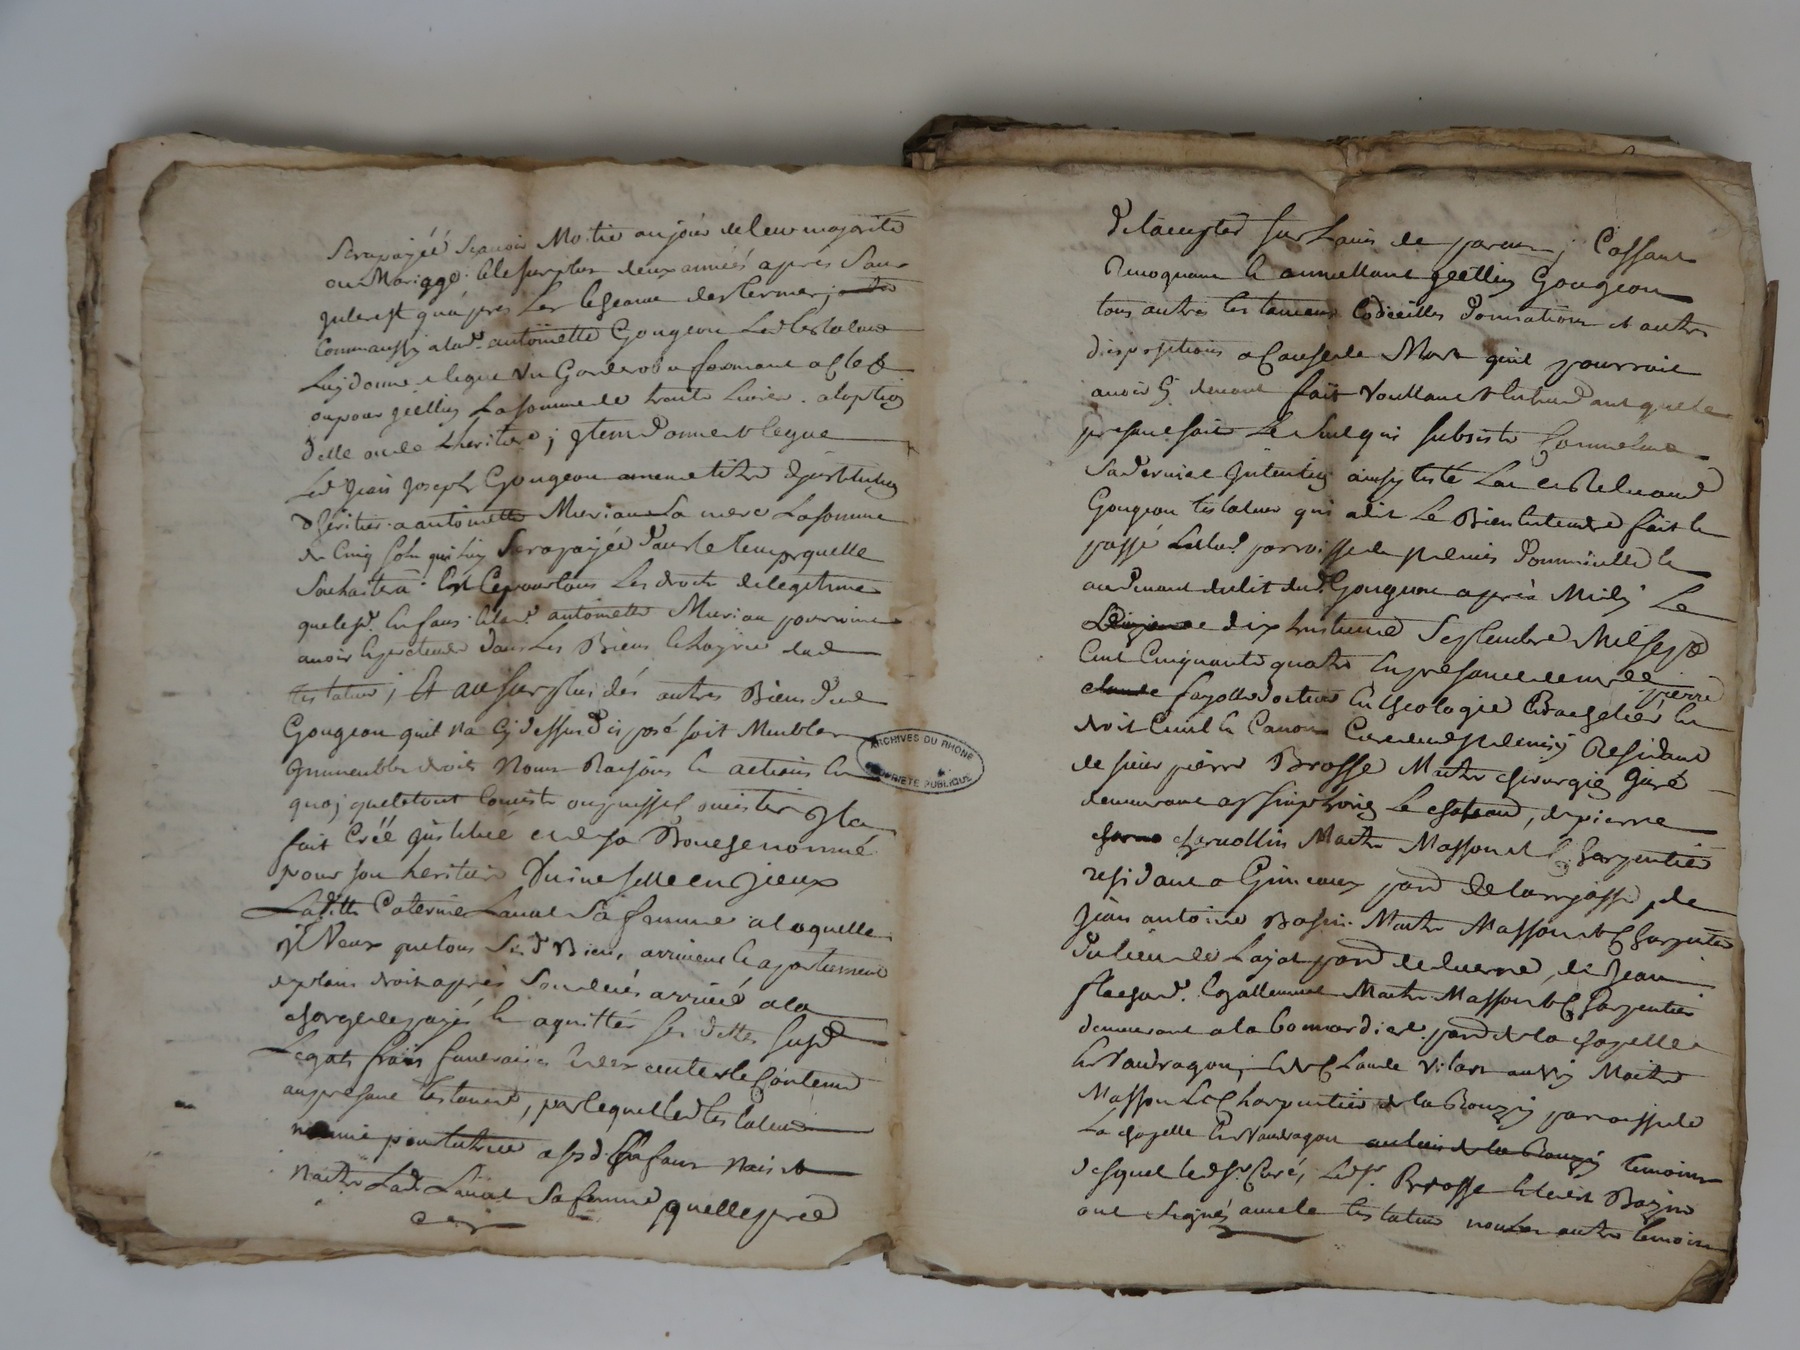 Serapayéé Scavoir Moitie aujour deleur majorite
ou Mariage, et le surplus deux années après sans
Interest qu'après Les Echeance des termes;
Comm'aussy a lad.e antoinette Gougeon Led testateur
Luy donne et legue un Garderobe fermant a Clef
ou pour Icelluy La somme de trente Livres. aloption
d'elle ou de L'heritiere; Item donne et legue
Led Jean Joseph Gougeon a meme titre d'Institution
d'héritier. a antoinette Murian Sa mere La somme
de Cinq Sols qui luy Sera payée Dans le temps quelle
Souhaitera Et Ce pour tous Les droits de legitime
que lesd. Enfans et lad.e antoinette Murian pourroient
avoir et pretendre dans Les Biens et hoyrie dud
testateur; Et au surplus dés autres Biens dud
Gougeon quil n'a Cy dessus disposé soit Meubles
Immeubles droits Noms Raisons et actions En
quoy que le tout Consiste ou puissent consister Il a
fait Créé Institué et de sa Bouche nommé
pour son heritiere Universelle en Iceux
Laditte Caterine Laval Sa femme a laquelle
Il Veux que tous Sesd Biens, arrivent et apartiennent
de plain droit après Son decés arrivé a la
charge de payér et aquitter ses dettes susd
Legats frais funeraires et d'executer le Contenu
au present testament, par lequel led testateur
nomme pour tutrice a sesd Enfans Nais et
Naitre Lad.e Laval Sa femme quelle prie
ARCHIVES DU RHONE
PROPRIETE PUBLIQUE
D'accepter sur L'avis de parens; Cassant
Revoquant et annullant Icelluy Gougeon
tous autres testamens Codicilles Donnations et autres
dispositions a Cause de Mort quil pourroit
avoir Cy devant fait Voullant et entendant que le
present soit Le Seul qui subsiste Comme sa
Sa derniere Intention ainsy testé Led
Gougeon testateur qui a dit Le Bien Entendre fait et
passé parroisse de St denis
au devant du lit dud. Gougeon après Midy Le
dix huitieme Septembre Mil sept
Cent Cinquante quatre En presence de m.re
pierre
fayolle docteur En theologie Bachelier En
droit Civil et Canon Curé dud St denis y Residant
de sieur pierre Brosse Maitre chirurgien Juré
demeurant a St Simphorien Le chateau, de pierre
charvollin Maitre Masson et Charpentier
residant a Gimeaux par de larrajasse, de
Jean antoine Basin Maitre Masson et Charpentier
du lieu de Lajat par de duerne, de Jean
flachard. Egallement Maitre Masson et Charpentier
demeurant a la Bonnardiere par de la chapelle
En Vaudragon, et de Claude Vilard aussy Maitre
Masson Et Charpentier de la Rouzy parroisse de
La chapelle En Vaudragon temoins
desquel led S.r Curé, Led S.r Brosse Et led Bazin
ont Signés avec le testateur non Les autres temoins